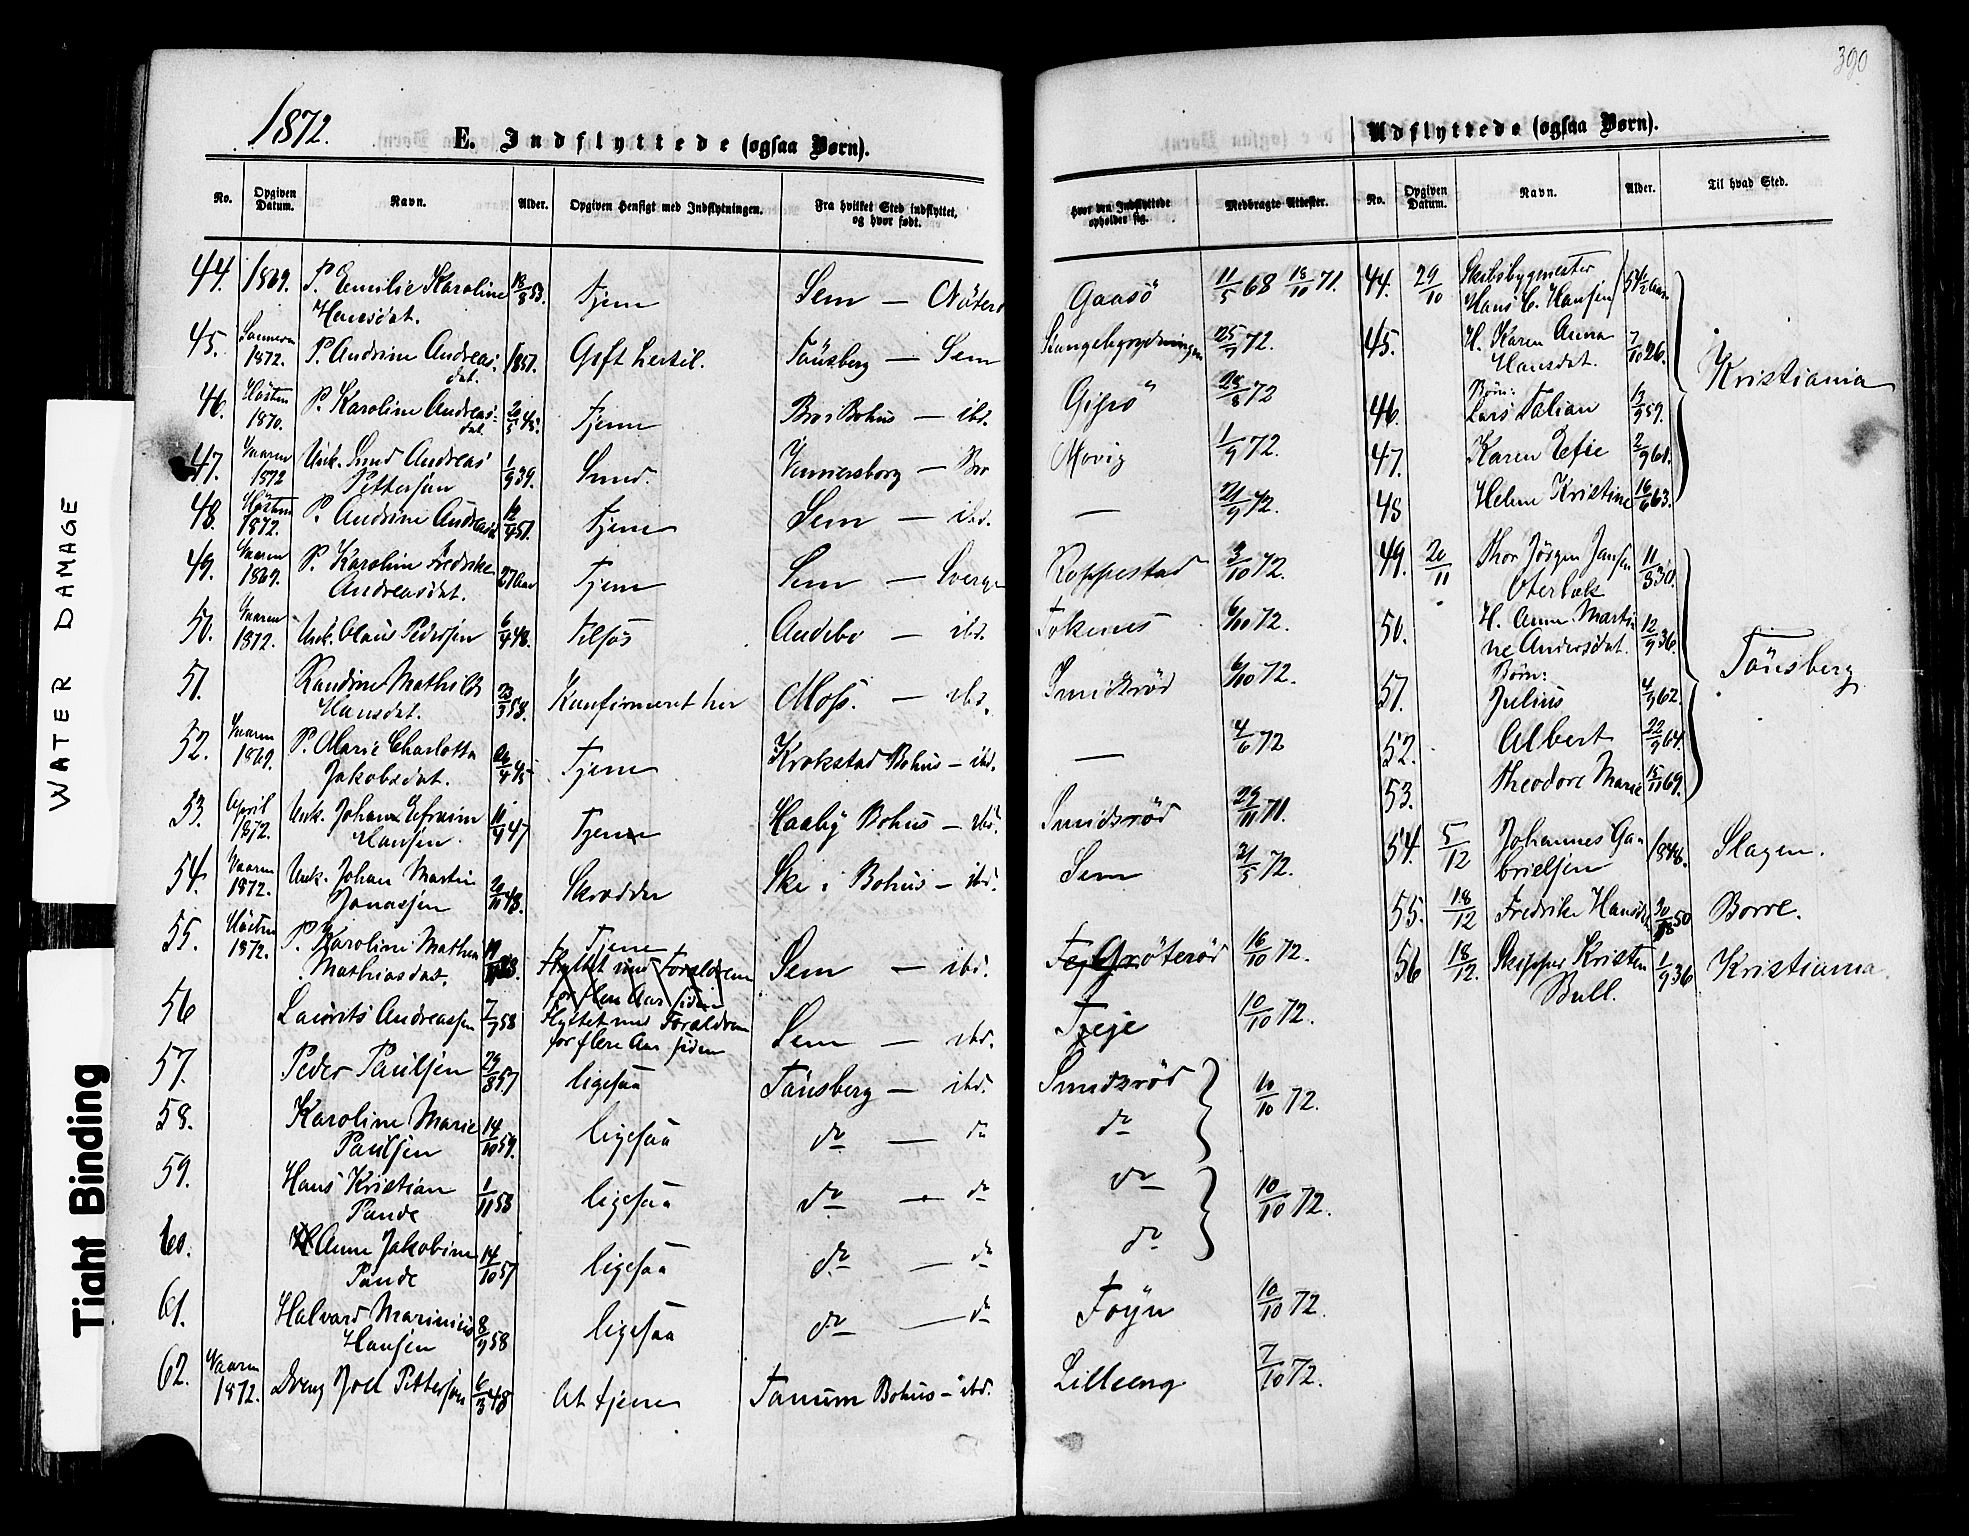 390
1872.
E. Indflyttede (ogsaa Børn).
No.
Opgiven Datum.
Navn.
Alder.
Opgiven Hensigt med Indflytningen.
Fra hvilket Sted indflyttet, og hvor født.
Hvor den Indflyttede opholder sig.
Medbragte Attester.
44. 1869. P. Emilie Karoline 18/8 53. Tjene Sem — Nöterö Gaasö 11/5 68 18/10 71.
Hansdat.
45. 1872. P. Andrine Andreas- 1857. Gift hertil. Tönsberg — Sem 25/9 72.
dat.
46. Hösten 1870. P. Karoline Andreas- 20/5 45. Tjene Bro i Bohus — ibd. 28/8 72
dat.
47. Vaaren 1872 Unk. Smed Andreas 1/9 39. Smed. Vennersborg — Movig 1/9 72.
Pettersen
48. Hösten 1872. P. Andrine Andreasd 12/4 51. Tjene Sem — ibd. — 21/9 72.
49. Vaaren 1869. P. Karoline Fredrikke 27 Aar Tjene Sem — Sverge Roppestad 3/10 72.
Andreasdat.
50. Vaaren 1872. Unk. Olaus Pedersen 6/4 48. Tilsös Andebo — ibd. 6/10 72.
51. Randine Mathilde 23/3 58. Konfirmeret her Moss. — ibd. Smidsröd 6/10 72.
Hansdat.
52. Vaaren 1869. P. Marie Charlotta 26/4 45 Tjene Krokstad Bohus — ibd. — 4/6 72
Jakobsdat.
53. April 1872. Unk. Johan Efraim 11/4 47 Tjene Haaby Bohus — ibd. Smidsröd 29/11 71.
Hansen.
54. Vaaren 1872. Unk. Johan Martin 20/11 48. Skrædder Ske i Bohus — ibd. Sem 21/5 72.
Jonassen
55. Hösten 1872. P. Karoline Mathea Tjene Sem — ibd. Gröteröd 16/10 72.
Mathiasdat. Flyttet med Forældrene
for flere Aar siden
56 Laurits Andreassen 7/7 58 Flyttet med Forældrene Sem — ibd. Teje 10/10 72.
for flere Aar siden
57. Peder Paulsen 29/8 57 ligesaa Tönsberg — ibd. Smidsröd 10/10 72.
58. Karoline Marie 14/10 59. ligesaa do — do do
Paulsen
59. Hans Kristian 1/11 53 ligesaa do — do do 10/10 72.
Pande
60. Anne Jakobine 14/10 57 ligesaa do — do do
Pande
61. Halvard Marinius 8/9 58 ligesaa do — do Föyn 10/10 72.
Hansen
62. Vaaren 1872. Dreng Joel Pettersen 6/3 48 At tjene Tanum Bohus — ibd. Lilleeng 7/10 72.
Udflyttede (ogsaa Børn).
No.
Opgiven Datum.
Navn.
Alder.
Til hvad Sted.
44. 29/10 Skibsbygmester 54 1/2 Aar. Kristiania
Hans C. Hansen
45. H. Karen Anna 7/10 26.
Hansdat.
Børn:
46. Lars Talian 12/9 59.
47. Karen Tefie 2/9 61.
48 Helene Kristine 16/6 63.
49. 20/11 Thor Jörgen Jansen 11/3 30. Tönsberg
Oterbæk
50. H. Anne Marti- 12/9 36.
ne Andersdat.
Børn:
51. Julius 4/9 62.
52. Albert 22/9 64.
53. Theodore Marie 15/11 69.
54. 5/12 Johannes Ga- 1848. Slagen.
brielsen
55. 18/12 Fredrike Hansda 50 Borre.
56 18/12. Skipper Kristen 1/9 36 Kristiania.
Bull.
WATER DAMAGE
Tight Binding